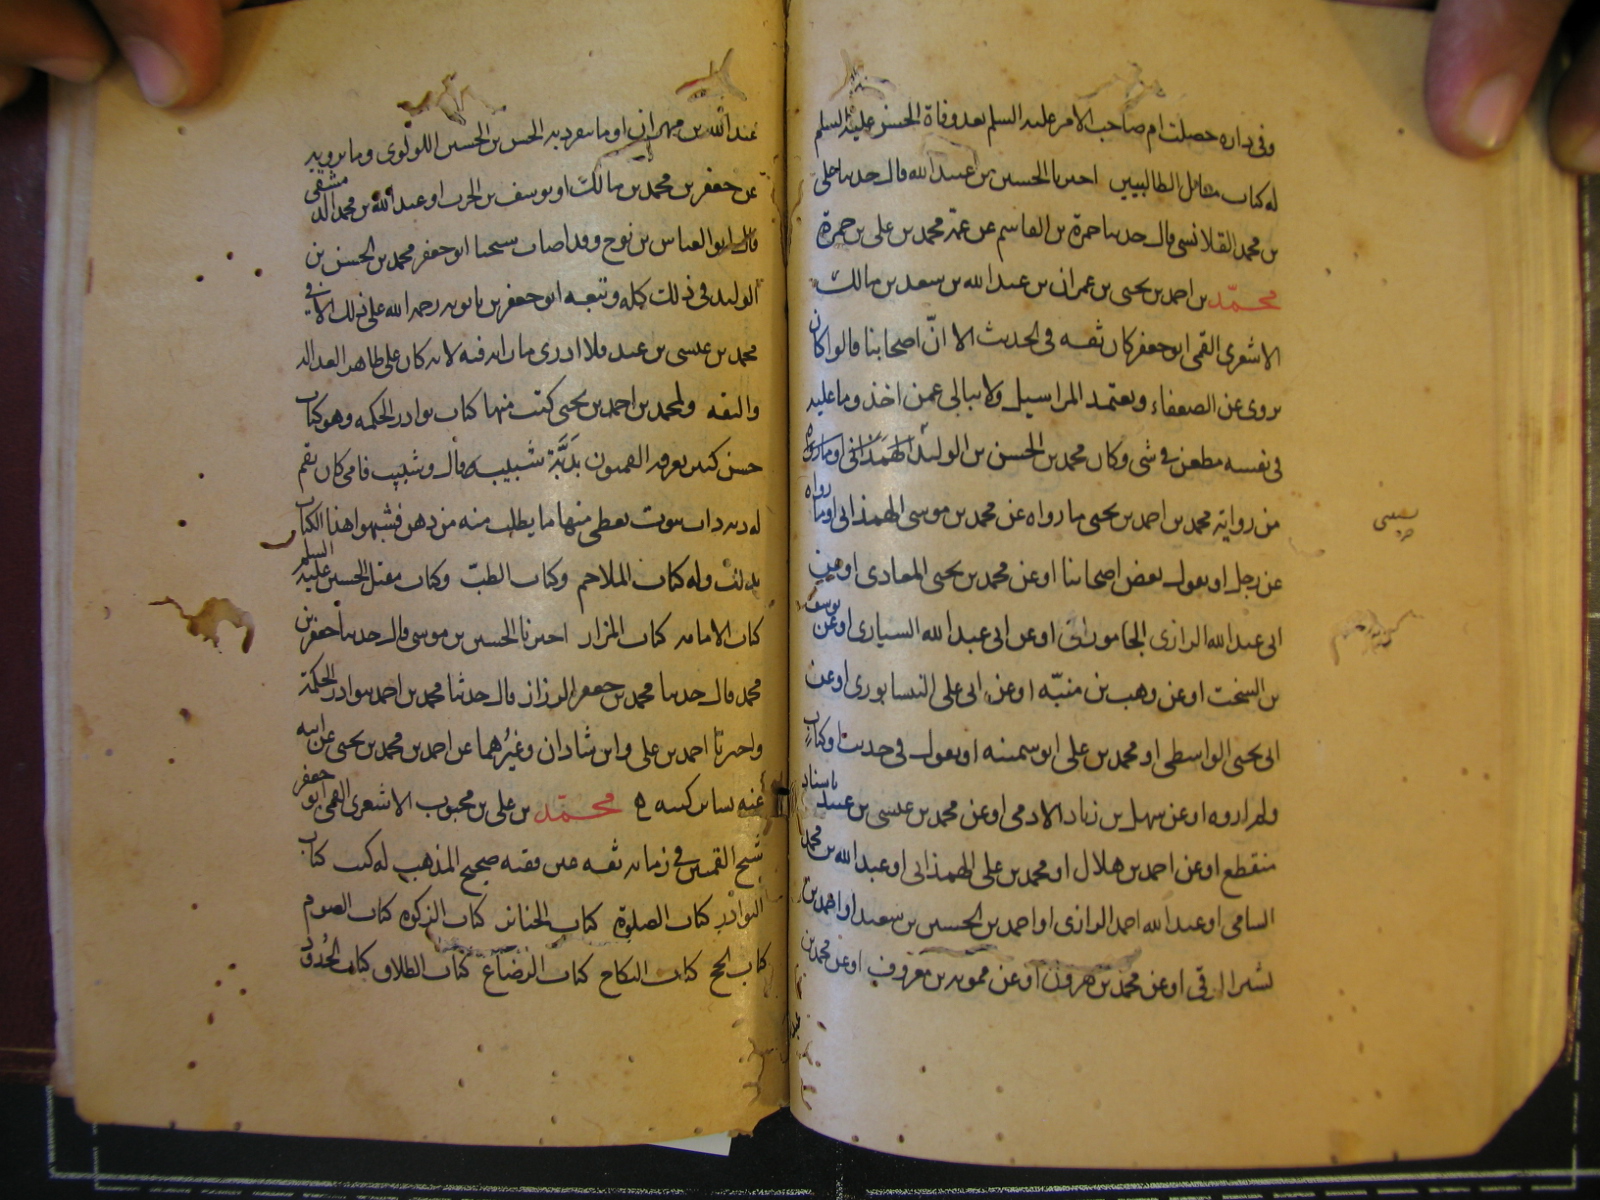 وفى داره حصلت ام صاحب الامر عليه السلم بعد وفاة الحسن عليه السلم
له كتاب مقاتل الطالبيين اخبرنا الحسين بن عبيد الله قال حدثنا على
بن محمد القلانسى قال حدثنا حمزة بن القاسم عن عمه محمد بن على بن حمزة
محمّد بن احمد بن يحيى بن عمران بن عبد الله بن سعد بن مالك
الاشعرى القمى ابو جعفر كان ثقه فى الحديث الا انّ اصحابنا قالوا كان
يروى عن الضعفاء ويعتمد المراسيل ولا يبالى عمن اخذ وما عليه
فى نفسه مطعن فى شى وكان محمد بن الحسن بن الوليد
من رواية محمد بن احمد بن يحيى ما رواه عن محمد بن موسى الهمذانى او ما رواه
عن رجل او يقول بعض اصحابنا او عن محمد بن يحيى المعاذى او عن
ابى عبد الله الرازى الجامورانى او عن ابى عبد الله السيارى او عن يوسف
بن السخت او عن وهب بن منبّه او عن ابى على النيسابورى او عن
ابى يحيى الواسطى او محمد بن على ابو سمينه او يقول فى حديث او كتاب
ولم اروه او عن سهل بن زياد الادمى او عن محمد بن عيسى بن عبيد باسناد
منقطع او عن احمد بن هلال او محمد بن على الهمذانى او عبد الله بن محمد
الشامى او عبد الله احمد الرازى او احمد بن الحسين بن سعيد او احمد بن
بشير الرقى او عن محمد بن هرون او عن ممويه بن معروف او عن محمد بن
عبد الله بن مهران او ما يتفرد به الحسن بن الحسين اللولوى وما يرويه
عن جعفر بن محمد بن مالك او يوسف بن الحرث او عبد الله بن محمد الدمشقى
قال ابو العباس بن نوح وقد اصاب شيخنا ابو جعفر محمد بن الحسن بن
الوليد فى ذلك كله وتبعه ابو جعفر بن بابويه رحمه الله على ذلك الا فى
محمد بن عيسى بن عبيد فلا ادرى ما رابه فيه لانه كان على ظاهر العداله
والثقه ولمحمد بن احمد بن يحيى كتب منها كتاب نوادر الحكمه وهو كتاب
حسن كبير يعرفه القميون بدَبَّة شبيب قال وشبيب فامى كان بقم
له دبه ذات بيوت يعطى منها ما يطلب منه من دهن فشبهوا هذا الكتاب
بذلك وله كتاب الملاحم وكتاب الطبّ وكتاب مقتل الحسين عليه السلم
كتاب الامامه كتاب المزار اخبرنا الحسين بن موسى قال حدثنا جعفر بن
محمد قال حدثنا محمد بن جعفر الرزاز قال حدثنا محمد بن احمد بنوادر الحكمة
واخبرنا احمد بن على وابن شاذان وغيرهما عن احمد بن محمد بن يحيى عن ابيه
عنه بساير كتبه محمّد بن على بن محبوب الاشعرى القمى ابو جعفر
شيخ القميين فى زمانه ثقه عين فقيه صحيح المذهب له كتب كتاب
النوادر كتاب الصلوة كتاب الجنائز كتاب الزكوة كتاب الصوم
كتاب الحج كتاب النكاح كتاب الرضاع كتاب الطلاق كتاب الحدود